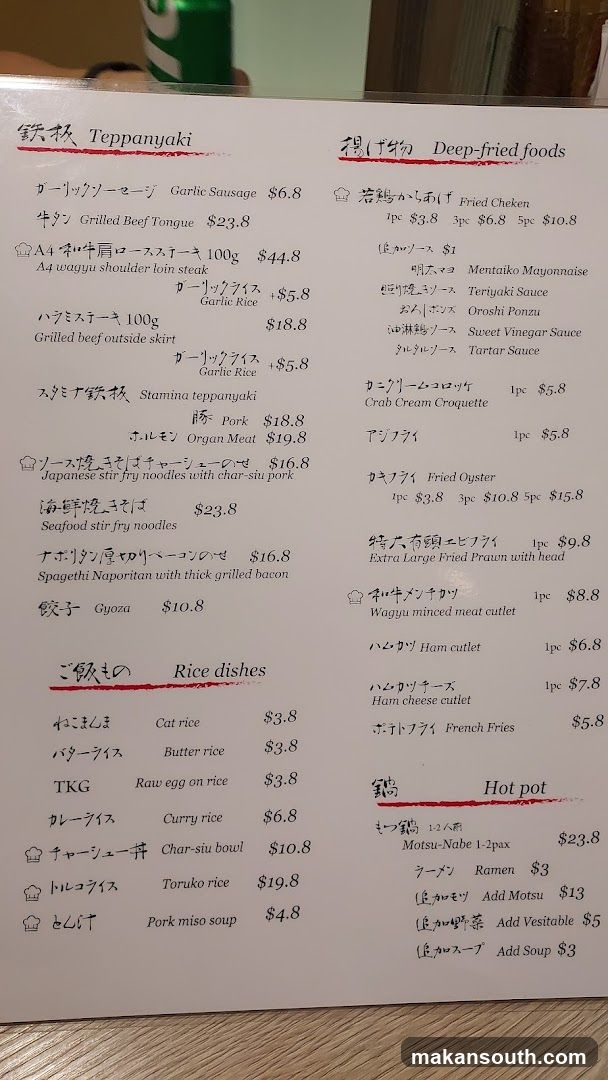 鉄板 Teppanyaki
ガーリックソーセージ Garlic Sausage $6.8
牛タン Grilled Beef Tongue $23.8
A4 和牛肩ロースステーキ 100g $44.8
A4 wagyu shoulder loin steak
ガーリックライス
Garlic Rice +$5.8
ハラミステーキ 100g $18.8
Grilled beef outside skirt
ガーリックライス
Garlic Rice +$5.8
スタミナ鉄板 Stamina teppanyaki
豚 Pork $18.8
ホルモン Organ Meat $19.8
ソース焼きそばチャーシューのせ $16.8
Japanese stir fry noodles with char-siu pork
海鮮焼きそば $23.8
Seafood stir fry noodles
ナポリタン厚切りベーコンのせ $16.8
Spagethi Naporitan with thick grilled bacon
餃子 Gyoza $10.8
ご飯もの Rice dishes
ねこまんま Cat rice $3.8
バターライス Butter rice $3.8
TKG Raw egg on rice $3.8
カレーライス Curry rice $6.8
チャーシュー丼 Char-siu bowl $10.8
トルコライス Toruko rice $19.8
とん汁 Pork miso soup $4.8
揚げ物 Deep-fried foods
若鶏からあげ Fried Cheken
1pc $3.8 3pc $6.8 5pc $10.8
追加ソース $1
明太マヨ Mentaiko Mayonnaise
照り焼きソース Teriyaki Sauce
おろしポンズ Oroshi Ponzu
油淋鶏ソース Sweet Vinegar Sauce
タルタルソース Tartar Sauce
カニクリームコロッケ 1pc $5.8
Crab Cream Croquette
アジフライ 1pc $5.8
カキフライ Fried Oyster
1pc $3.8 3pc $10.8 5pc $15.8
特大有頭エビフライ 1pc $9.8
Extra Large Fried Prawn with head
和牛メンチカツ 1pc $8.8
Wagyu minced meat cutlet
ハムカツ Ham cutlet 1pc $6.8
ハムカツチーズ 1pc $7.8
Ham cheese cutlet
ポテトフライ French Fries $5.8
鍋 Hot pot
もつ鍋 1-2人前 $23.8
Motsu-Nabe 1-2pax
ラーメン Ramen $3
追加モツ Add Motsu $13
追加野菜 Add Vesitable $5
追加スープ Add Soup $3
makansouth.com